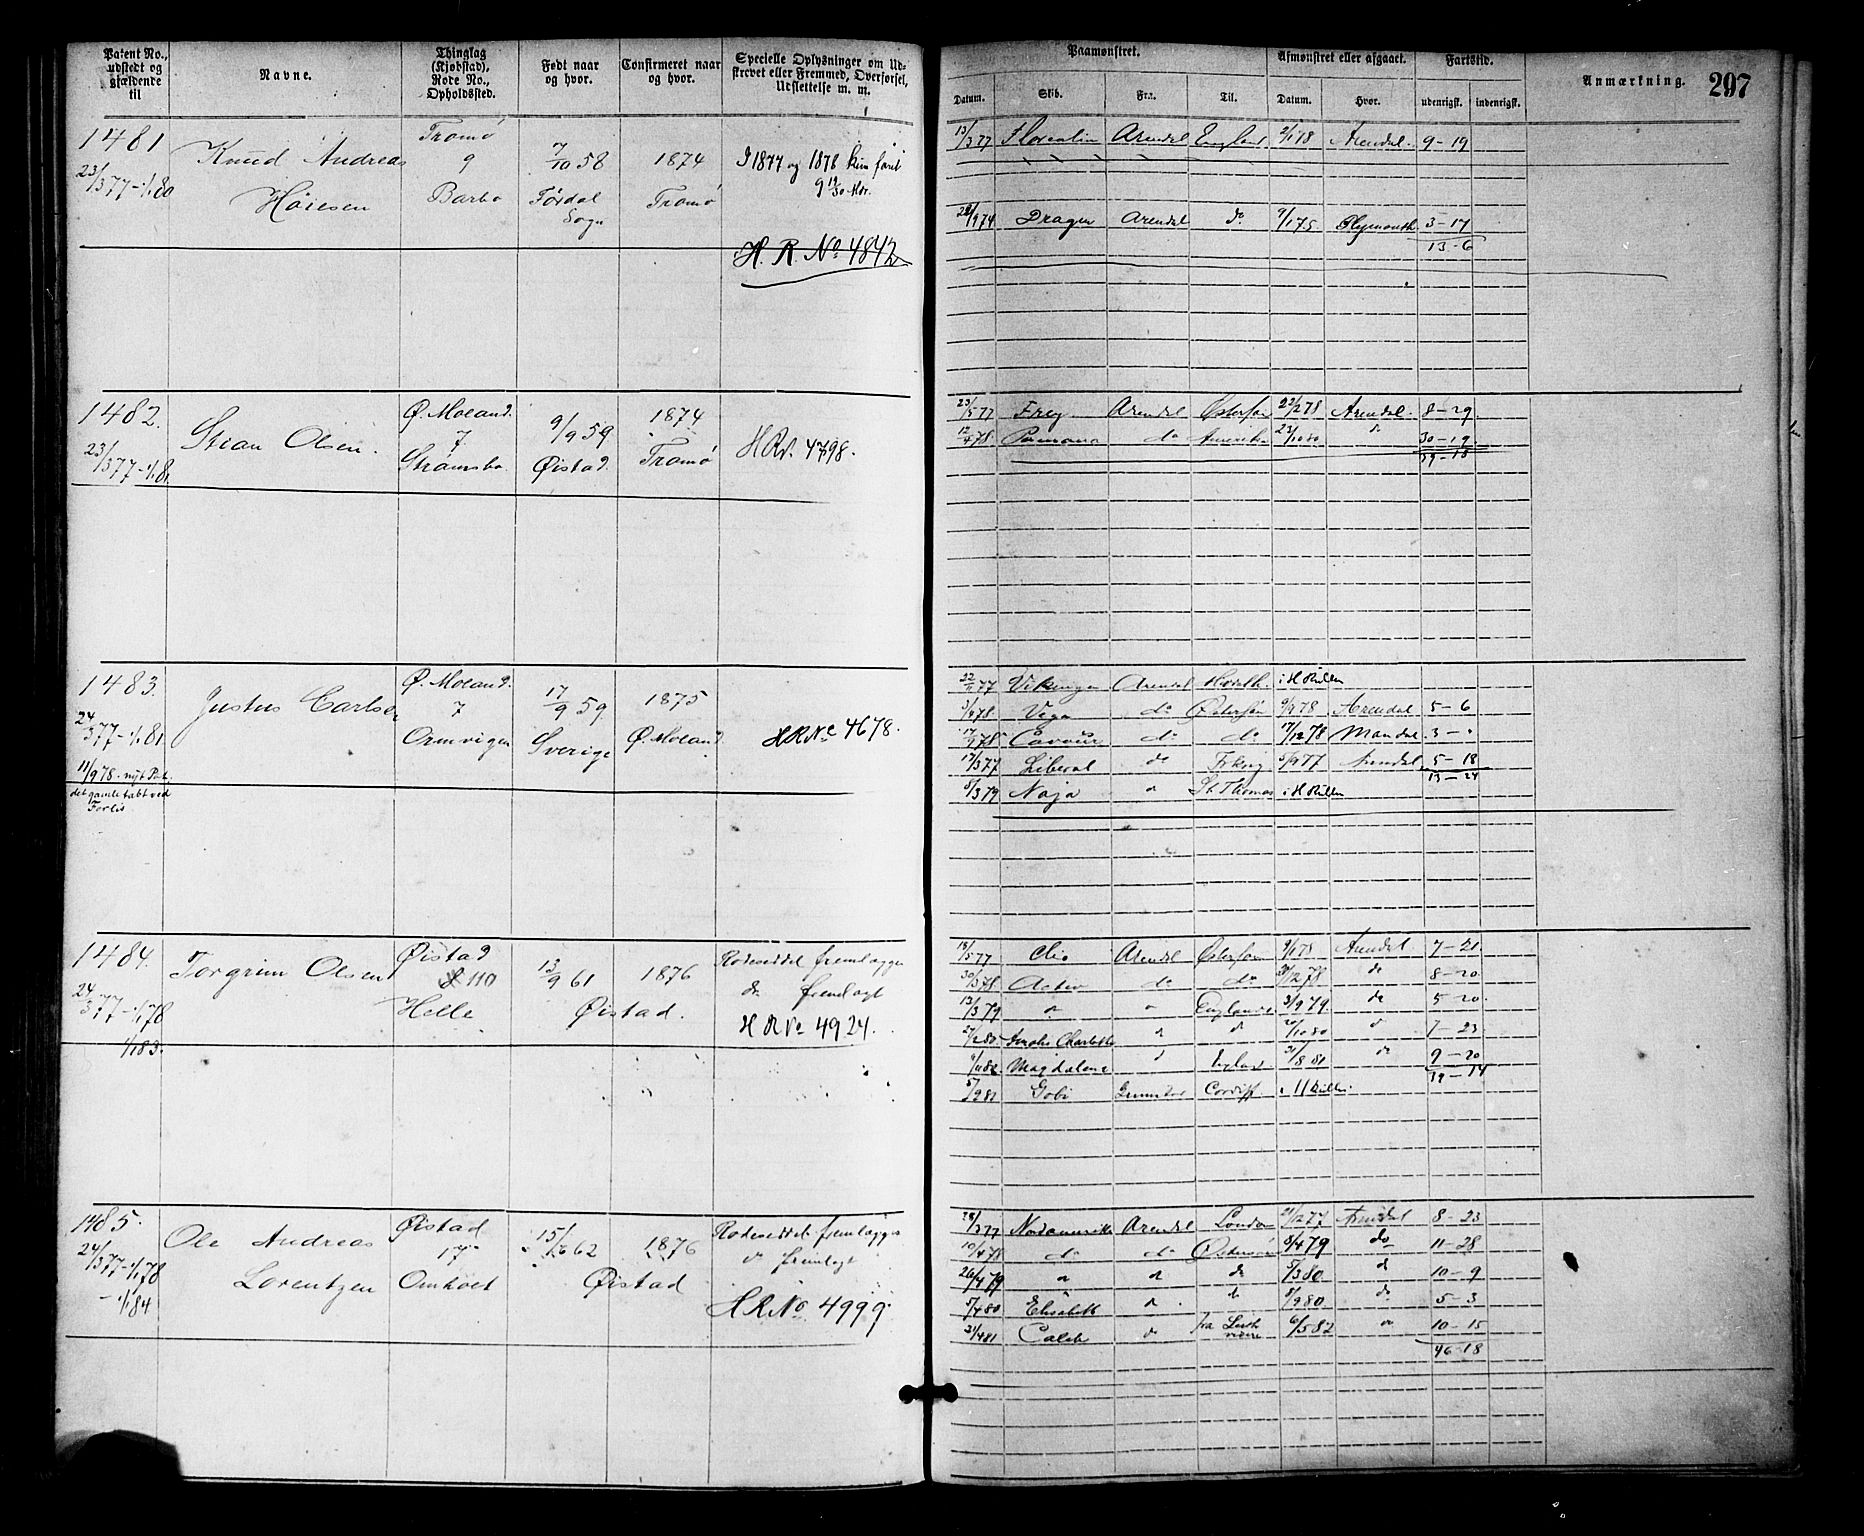 Patent No., udstedt og gjældende til
Navne.
Thinglag (Kjøbstad), Rode No., Opholdssted.
Født naar og hvor.
Confirmeret naar og hvor.
Specielle Oplysninger om Udskrevet eller Fremmed, Overførsel, Udslettelse m. m.
Paamønstret.
Afmønstret eller afgaaet.
Fartstid.
Anmærkning.
297
Datum.
Skib.
Fra.
Til.
Datum.
Hvor.
udenrigsk.
indenrigsk.
1481
23/3 77 - 1/1 80
Knud Andreas
Høiesen
Tromø
9
Barbo
7/10 58
Førdal
Sogn
1874
Tromø
I 1877 og 1878 kun faret
9 19/30 Mdr.
H. R. No 4842
13/3 77 Florentin Arendal England 2/1 78 Arendal. 9-19
28/9 74 Dragen Arendal do 9/1 75 Plymouth 3-17
13-6
1482.
23/3 77 - 1/1 81
Stian Olsen.
Ø. Moland.
7
Strømsbo
9/9 59
Øistad.
1874
Tromø
H R No. 4798.
23/5 77 Frey Arendal Østersøn 22/2 78 Arendal. 8-29
12/4 78 do Amerika 23/10 80 do 30-19.
39-18
1483.
24/3 77 - 1/1 81
11/9 78. nyt Pat.
det gamle tabt ved
Forlis
Justus Carlsen
Ø. Moland.
7
Ormvigen
17/9 59
Sverige
1875
Ø. Moland.
H R No 4678.
22/11 77 Vikingen Arendal i H Rullen
3/4 78 Vega do Østersøn 9/9 78 Arendal 5-6
17/9 78 Cavour do do 17/12 78 Mandal 3-"
17/3 77 Liberal do 5/9 77 Arendal 5-18
13-24
8/3 79 Naja do St. Thomas i H Rullen
1484.
24/3 77 - 1/1 78
1/1 83.
Torgrim Olsen
Øistad
110
Helle
13/9 61
Øistad.
1876
Rodeseddel fremlægges
do fremlagt
H R No 4924.
18/5 77 Clio Arendal Østersøen 9/1 78 Arendal 7-21.
30/3 78 Activ do do 21/12 78 do 8-20
13/3 79 do do England 3/9 79. do 5-20.
27/2 80. Charlotte do do 20/10 80 do 7-23
Magdalene do England 31/8 81 do 9-20
39-14
5/9 81 Gobi Grimstad Cardiff. i H Rullen.
1485.
24/3 77 - 1/1 78
- 1/1 84
Ole Andreas
Lorentzen
Øistad
17
Omholt
15/10 62
Øistad
1876
Rodeseddel fremlægges
do fremlagt
H R No 4999.
28/3 77 Nordamerika Arendal London 21/12 77 Arendal 8-23
10/4 78 do do Østersøn 8/4 79 do 11-28
26/4 79 do do do 5/3 80 do 10-9
5/4 80 Elisabeth do. do 8/9 80 do 5-3
21/4 81 Caleb do fra 6/5 82 do 10-15
46-18